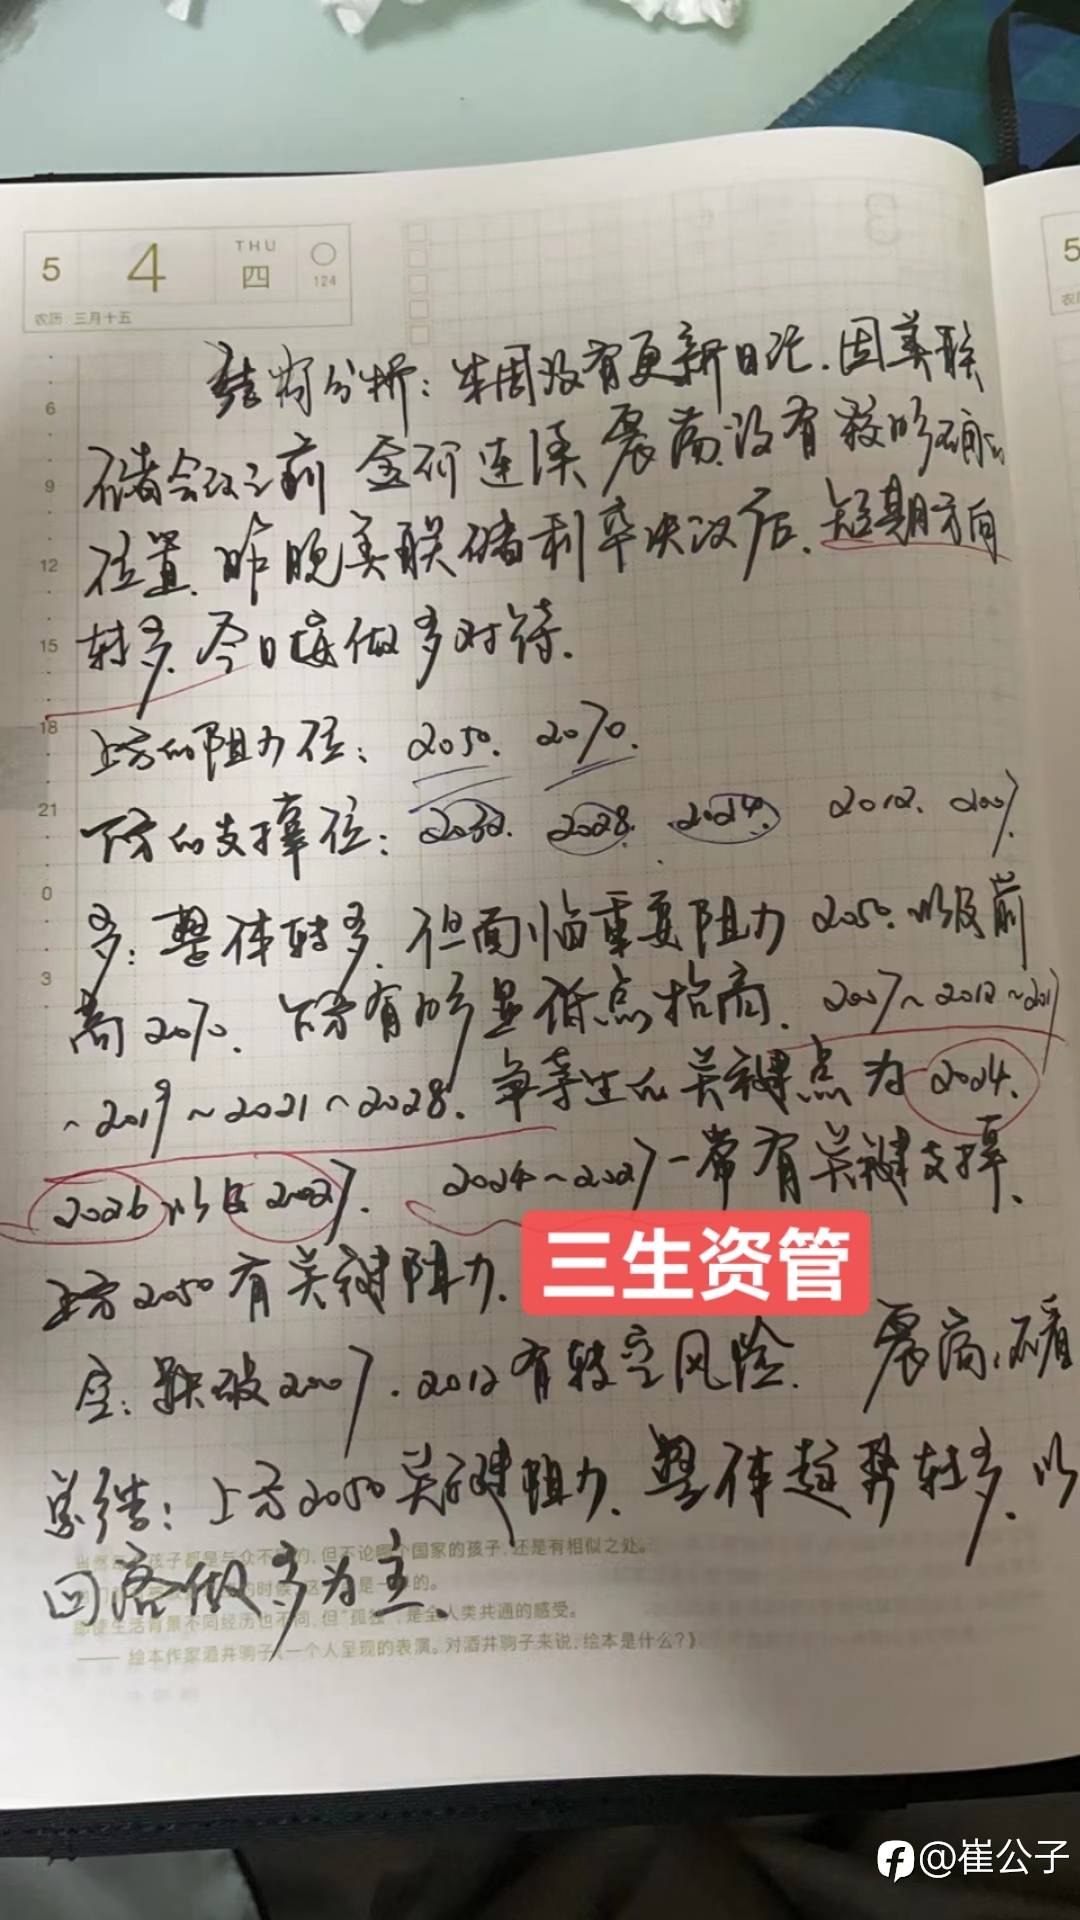 5 4 THU 四 124
农历 三月十五
6
9
12
15
18
21
0
3
结构分析：本周没有更新日记．因美联
储会议之前 金价连续震荡．没有较明确的
位置．昨晚美联储利率决议后．短期方向
转多．今日按做多对待．
上方的阻力位：2050．2070．
下方的支撑位：2032．2028．2024．2012．2007．
多：整体转多．但面临重要阻力 2050．以及前
高2070．下方有明显低点抬高．2007～2012～2017
～2019～2021～2028．的关键点为2024．
2026以及2027．2024～2027一带有关键支撑．
上方2050有关键阻力．
三生资管
空：跌破2007．2012有转空风险．震荡，
总结：上方2050关键阻力．整体趋势转多．以
回落做多为主．
孩子都是与众不 的，但不论哪个国家的孩子，还是有相似之处。
即使生活背景不同经历也不同，但“孤独”，是全人类共通的感受。
—— 绘本作家酒井驹子《一个人呈现的表演。对酒井驹子来说，绘本是什么？》
@崔公子